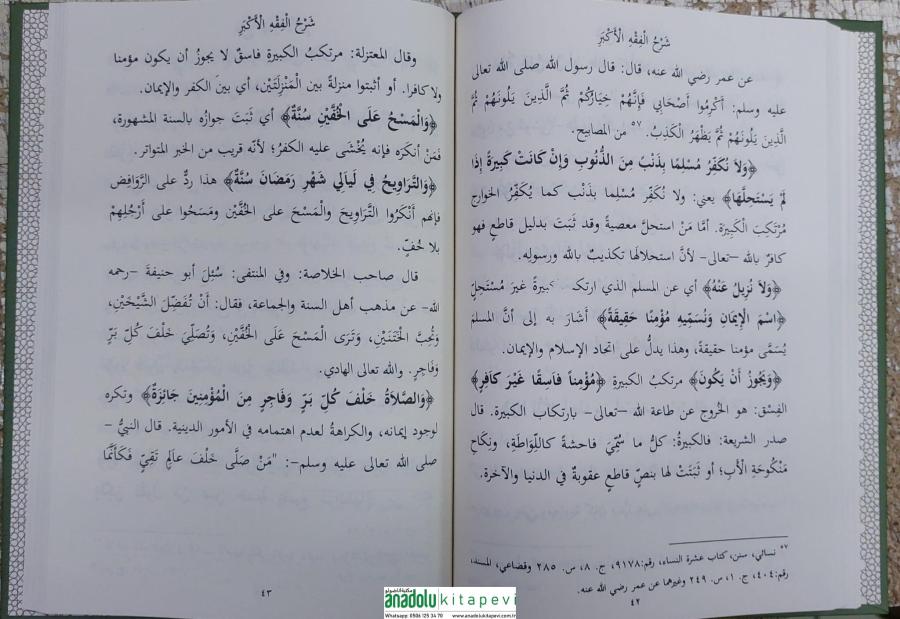 شَرْحُ الْفِقْهِ الْأَكْبَرِ
عن عمر رضي الله عنه، قال: قال رسول الله صلى الله تعالى
عليه وسلم: أَكْرِمُوا أَصْحَابِي فَإِنَّهُمْ خِيَارُكُمْ ثُمَّ الَّذِينَ يَلُونَهُمْ ثُمَّ
الَّذِينَ يَلُونَهُمْ ثُمَّ يَظْهَرُ الْكَذِبُ. ٥٧ من المصابيح.
﴿وَلاَ نُكَفِّرُ مُسْلِمًا بِذَنْبٍ مِنَ الذُّنُوبِ وَإِنْ كَانَتْ كَبِيرَةً إِذَا
لَمْ يَسْتَحِلَّهَا﴾ يعني: ولا نُكَفِّر مُسْلِما بذَنْب كما يُكَفِّرُ الخوارج
مُرْتَكِبَ الْكَبِيرَة. أمَّا مَنْ استحلَّ معصيةً وقد ثَبَتَ بدليل قاطعٍ فهو
كافرٌ بالله –تعالى– لأنَّ استحلالَها تكذيبٌ بالله ورسوله.
﴿وَلاَ نُزِيلُ عَنْهُ﴾ أي عن المسلم الذي ارتكـ ـبيرةً غيرَ مُسْتَحِلٍّ
﴿اسْمَ الْإِيمَانِ وَنُسَمِّيهِ مُؤْمِنًا حَقِيقَةً﴾ أَشَارَ به إلى أنَّ المسلمَ
يُسَمَّى مؤمنا حقيقةً، وهذا يدلُّ على اتحاد الإسلام والإيمان.
﴿وَيَجُوزُ أَنْ يَكُونَ﴾ مرتكبُ الكبيرةِ ﴿مُؤْمِناً فَاسِقًا غَيْرَ كَافِرٍ﴾
الفِسْق: هو الخُروج عن طاعة الله –تعالى– بارتكاب الكبيرة. قال
صدر الشريعة: فالكبيرةُ: كلُّ ما سُمِّيَ فاحشةً كاللِّوَاطَةِ، ونِكَاحِ
مَنْكُوحَةِ الْأَبِ؛ أو ثَبَتَتْ لها بنصٍّ قاطعٍ عقوبةٌ في الدنيا والآخرة.
٥٧ نسائي، سنن، كتاب عشرة النساء، رقم:٩١٧٨، ج. ٨، س. ٢٨٥ وقضاعي، المسند،
رقم:٤٠٤، ج. ١، س. ٢٤٩ وغيرهما عن عمر رضي الله عنه.
٤٢
شَرْحُ الْفِقْهِ الْأَكْبَرِ
وقال المعتزلة: مرتكبُ الكبيرةِ فاسقٌ لا يجوزُ أن يكون مؤمنا
ولا كافرا. أو أثبتوا منزلةً بين الْمَنْزِلَتَيْن، أي بينَ الكفر والإيمان.
﴿وَالْمَسْحُ عَلَى الْخُفَّيْنِ سُنَّةٌ﴾ أي ثَبَتَ جوازُه بالسنة المشهورة،
فَمَنْ أنكَرَه فإنه يُخْشَى عليه الكفرُ؛ لأنَّه قريب من الخبر المتواتر.
﴿وَالتَّرَاوِيحُ فِي لَيَالِي شَهْرِ رَمَضَانَ سُنَّةٌ﴾ هذا ردٌّ على الرَّوَافِضِ
فإنهم أَنْكَرُوا التَّرَاوِيحَ والْمَسْحَ على الخُفَّيْنِ ومَسَحُوا على أَرْجُلِهِمْ
بلا خُفٍّ.
قال صاحب الخلاصة: وفي المنتقى: سُئِلَ أبو حنيفةَ –رحمه
الله– عن مذهب أهل السنة والجماعة، فقال: أَنْ تُفَضِّلَ الشَّيْخَيْنِ،
وَتُحِبَّ الْخَتَنَيْنِ، وَتَرَى الْمَسْحَ عَلَى الْخُفَّيْنِ، وَتُصَلِّيَ خَلْفَ كُلِّ بَرٍّ
وَفَاجِرٍ. والله تعالى الهادي.
﴿وَالصَّلاَةُ خَلْفَ كُلِّ بَرٍّ وَفَاجِرٍ مِنَ الْمُؤْمِنِينَ جَائِزَةٌ﴾ وتكره
لوجود إيمانه، والكراهةُ لعدم اهتمامه في الأمور الدينية. قال النبيُّ –
صلى الله تعالى عليه وسلم–: "مَنْ صَلَّى خَلْفَ عالمٍ تَقِيٍّ فَكَأَنَّمَا
٤٣
مكتبة اناضولو
anadolu kitapevi
Whatsapp: 0506 125 34 70 www.anadolukitapevi.com.tr